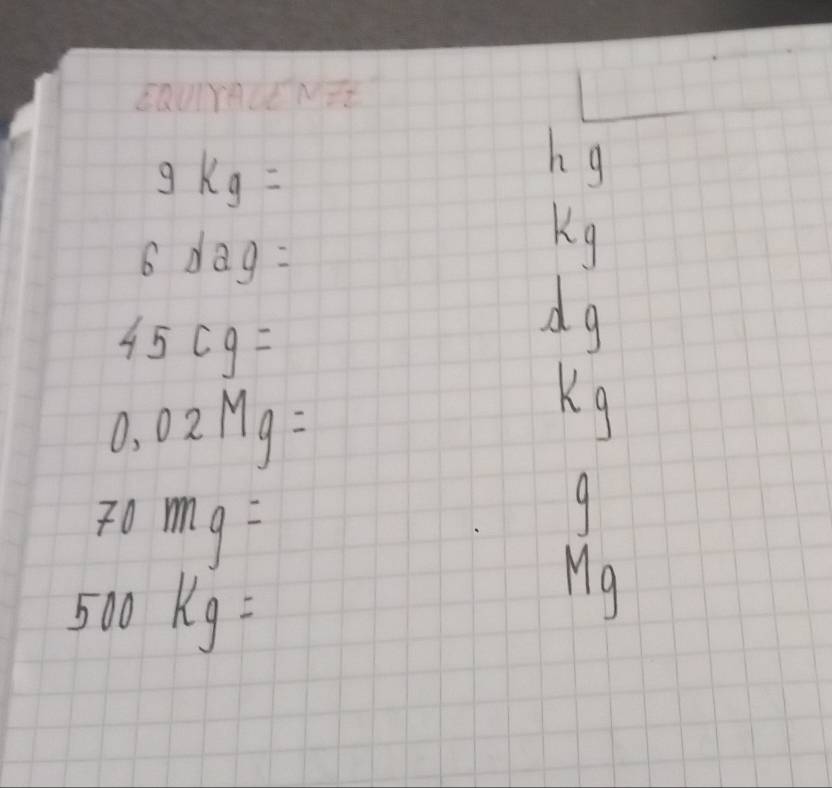 EQUIVALENZE
9 Kg = hg
6 dag = Kg
45 cg = dg
0,02 Mg = Kg
70 mg = g
500 Kg = Mg